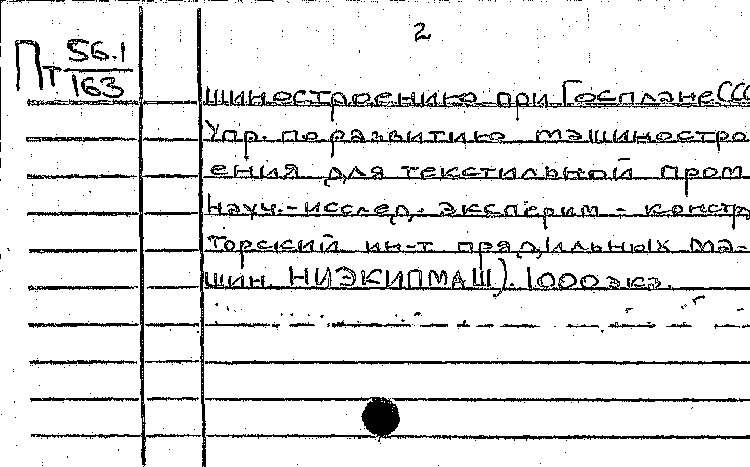 2
Пт 56.1
163
шиностроению при Госплане СССР
Упр. по развитию машиностро
ения для текстильной пром
Науч.-исслед. эксперим - констр
торский ин-т прядильных ма-
шин. НИЭКИПМАШ). 1000 экз.